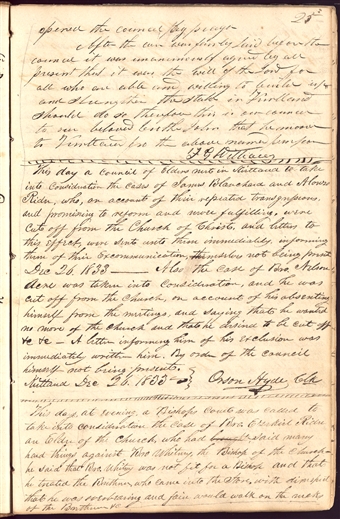 25
opened the council by prayer
After the case was fairly laid before the
council it was unanimously agreed by all
present that it was the will of the Lord for
all who are able and willing to build up
and strengthen the stake in Kirtland
should do so therefore this is our council
to our beloved brother John that he moove
to Kirtland for the above named purpose
F. G. Williams
This day a council of elders met in Kirtland to take
into Consideration the cases of James Blanchard and Alonzo
Rider, who, on account of their repeated transgressions,
and promising to reform and never fulfilling, were
cut off from the Church of Christ, and letters to
this effect, were sent unto them immediately, informing
them of their Excommunication, themselves not being present
Dec 26. 1833 — Also the case of Bro. Nelson
Acre was taken into Consideration, and he was
cut off from the Church, on account of his absenting
himself from the meetings, and saying that he wanted
no more of the Church and that he desired to be cut off
&c &c — A letter informing him of his exclusion was
immediately written him. By order of the council
himself not being present.
Kirtland Dec 26. 1833 — Orson Hyde, Clk
This day, at evening, a Bishops Court was called to
take into consideration the case of Bro Ezekiel Rider
an Elder of the Church, who had said many
hard things against Bro Whitney, the Bishop of the Church
he said that Bro. Whitney was not fit for a Bishop and that
he treated the Brethren, who came into the Store, with disrespect
that he was overbearing and fain would walk on the necks
of the Brethren &c